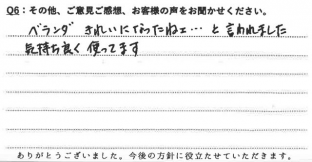 Q6：その他、ご意見ご感想、お客様の声をお聞かせください。
ベランダ きれいになったねェ… と 言われました
気持ち良く 使ってます
ありがとうございました。今後の方針に役立たせていただきます。